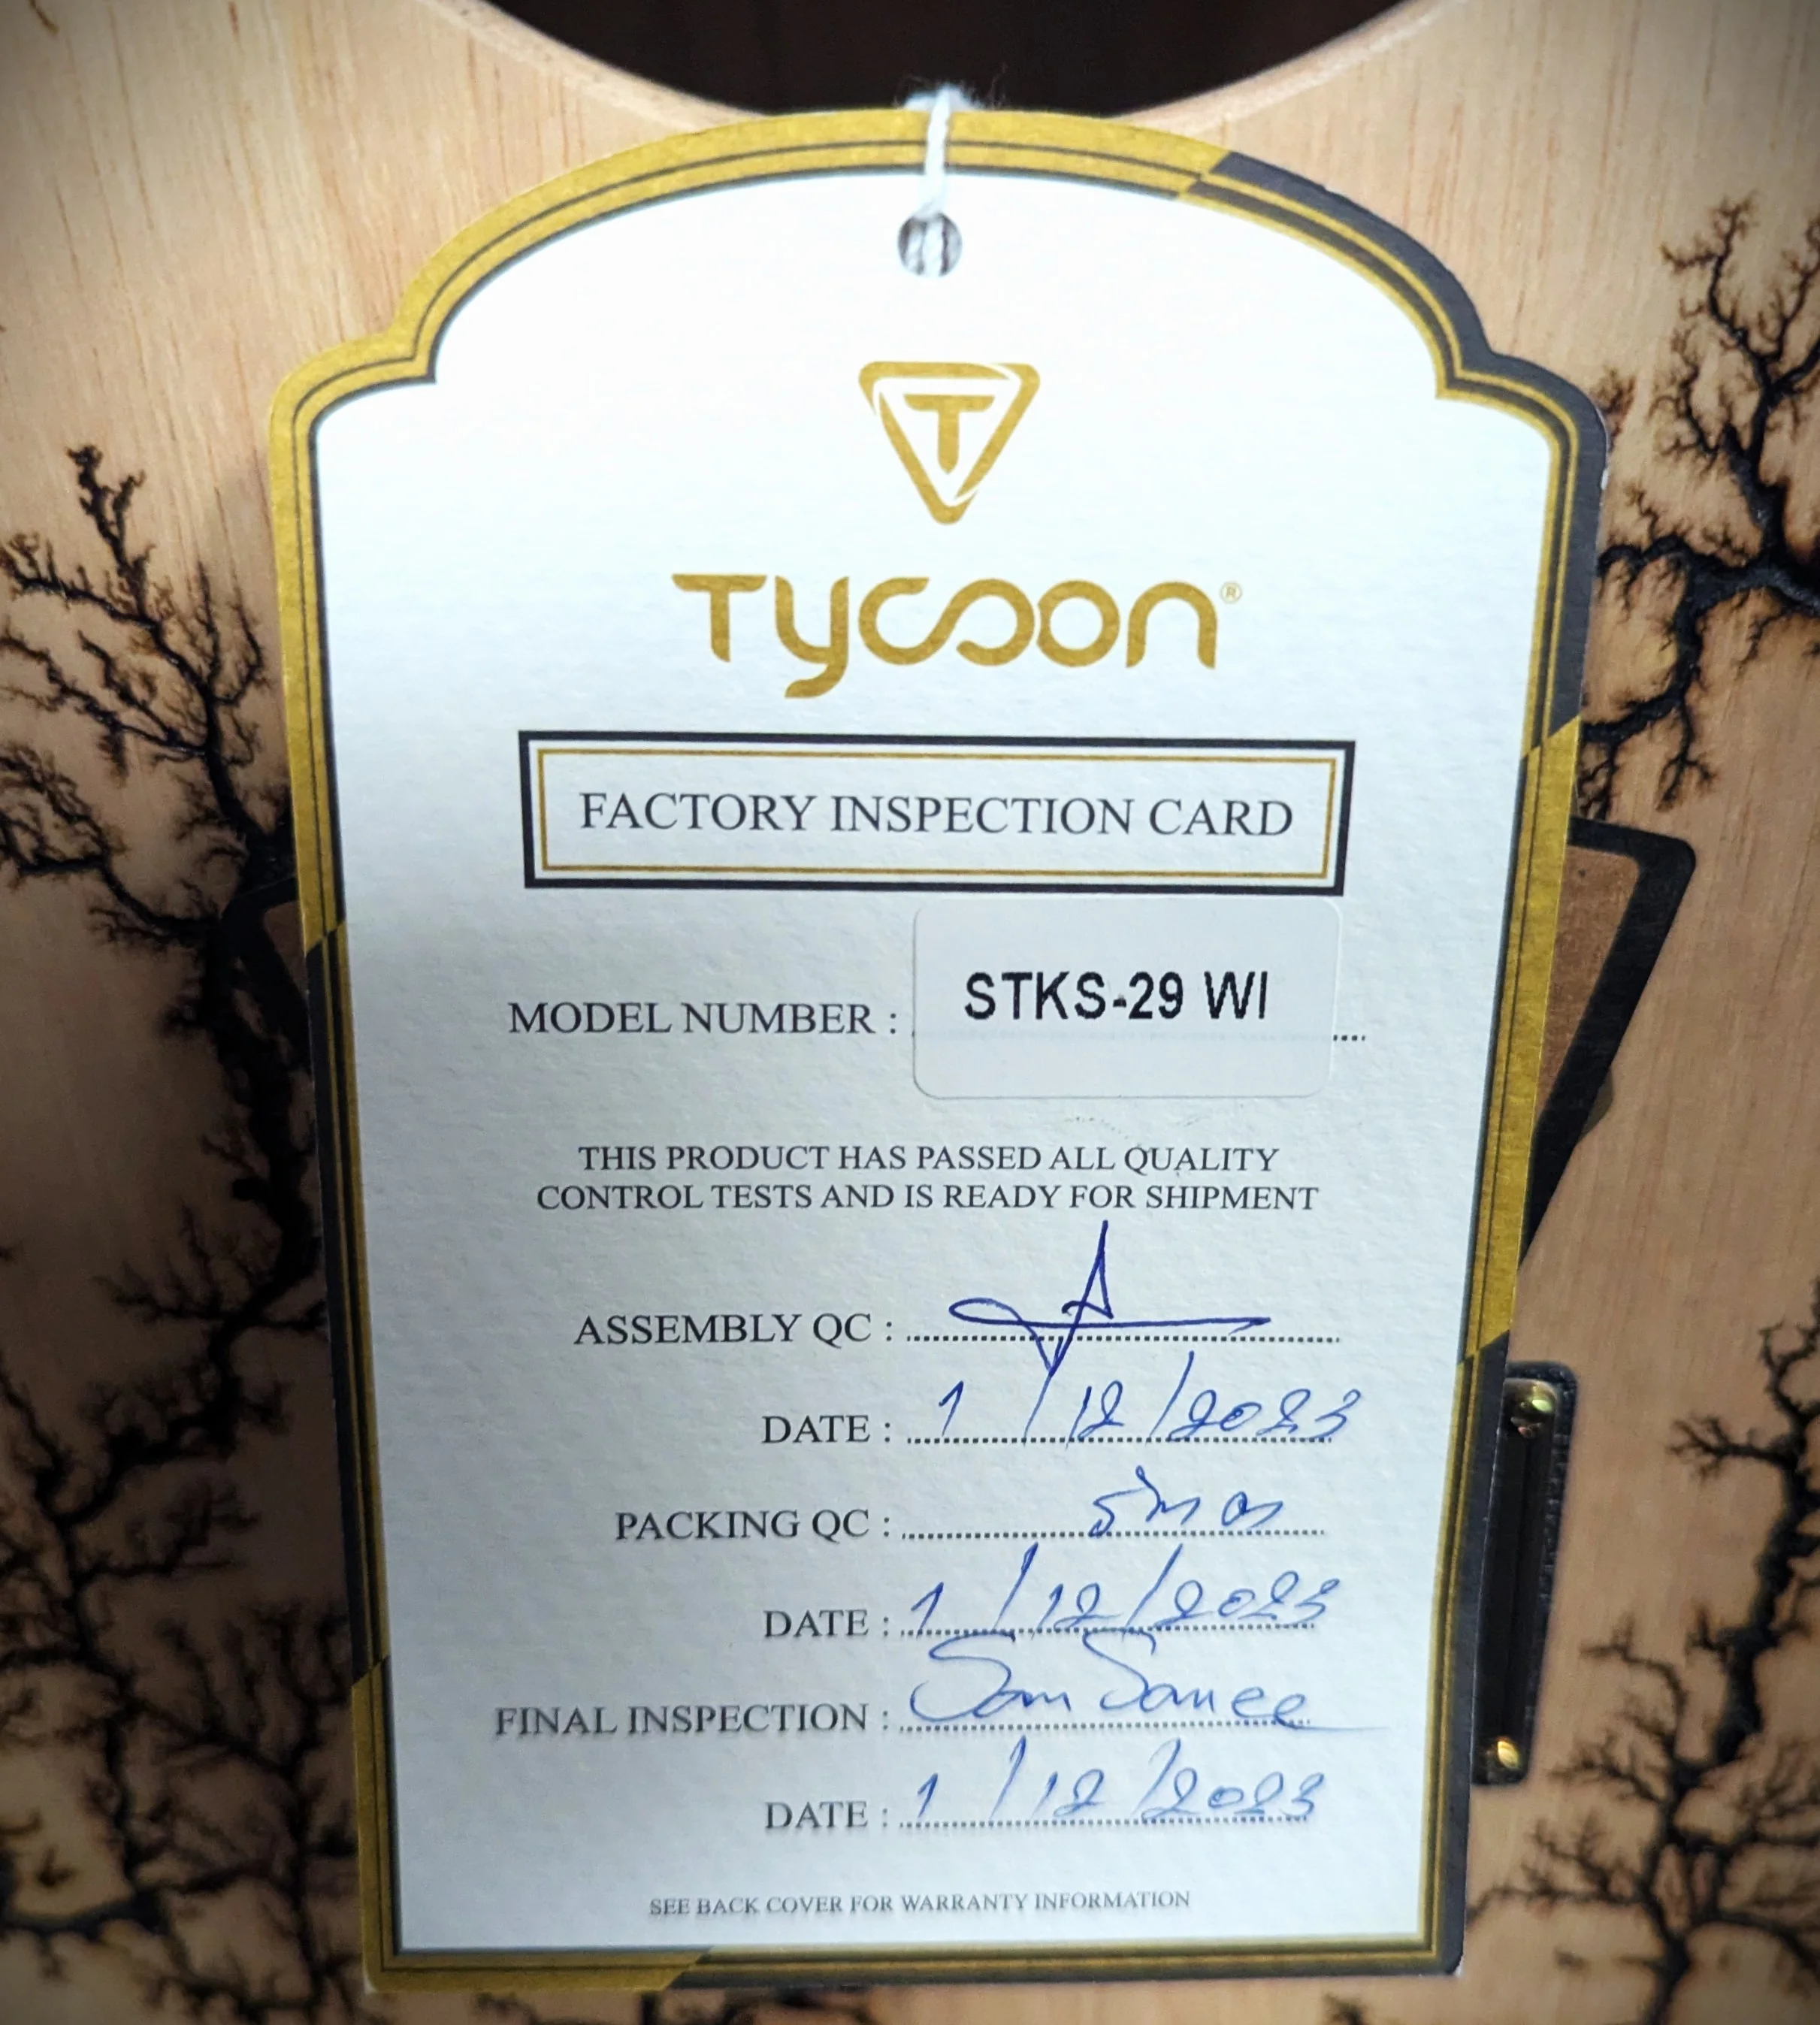 T
Tycoon®
FACTORY INSPECTION CARD
MODEL NUMBER : STKS-29 WI
THIS PRODUCT HAS PASSED ALL QUALITY
CONTROL TESTS AND IS READY FOR SHIPMENT
ASSEMBLY QC :
DATE : 1/12/2023
PACKING QC :
DATE : 1/12/2023
FINAL INSPECTION : Som
DATE : 1/12/2023
SEE BACK COVER FOR WARRANTY INFORMATION